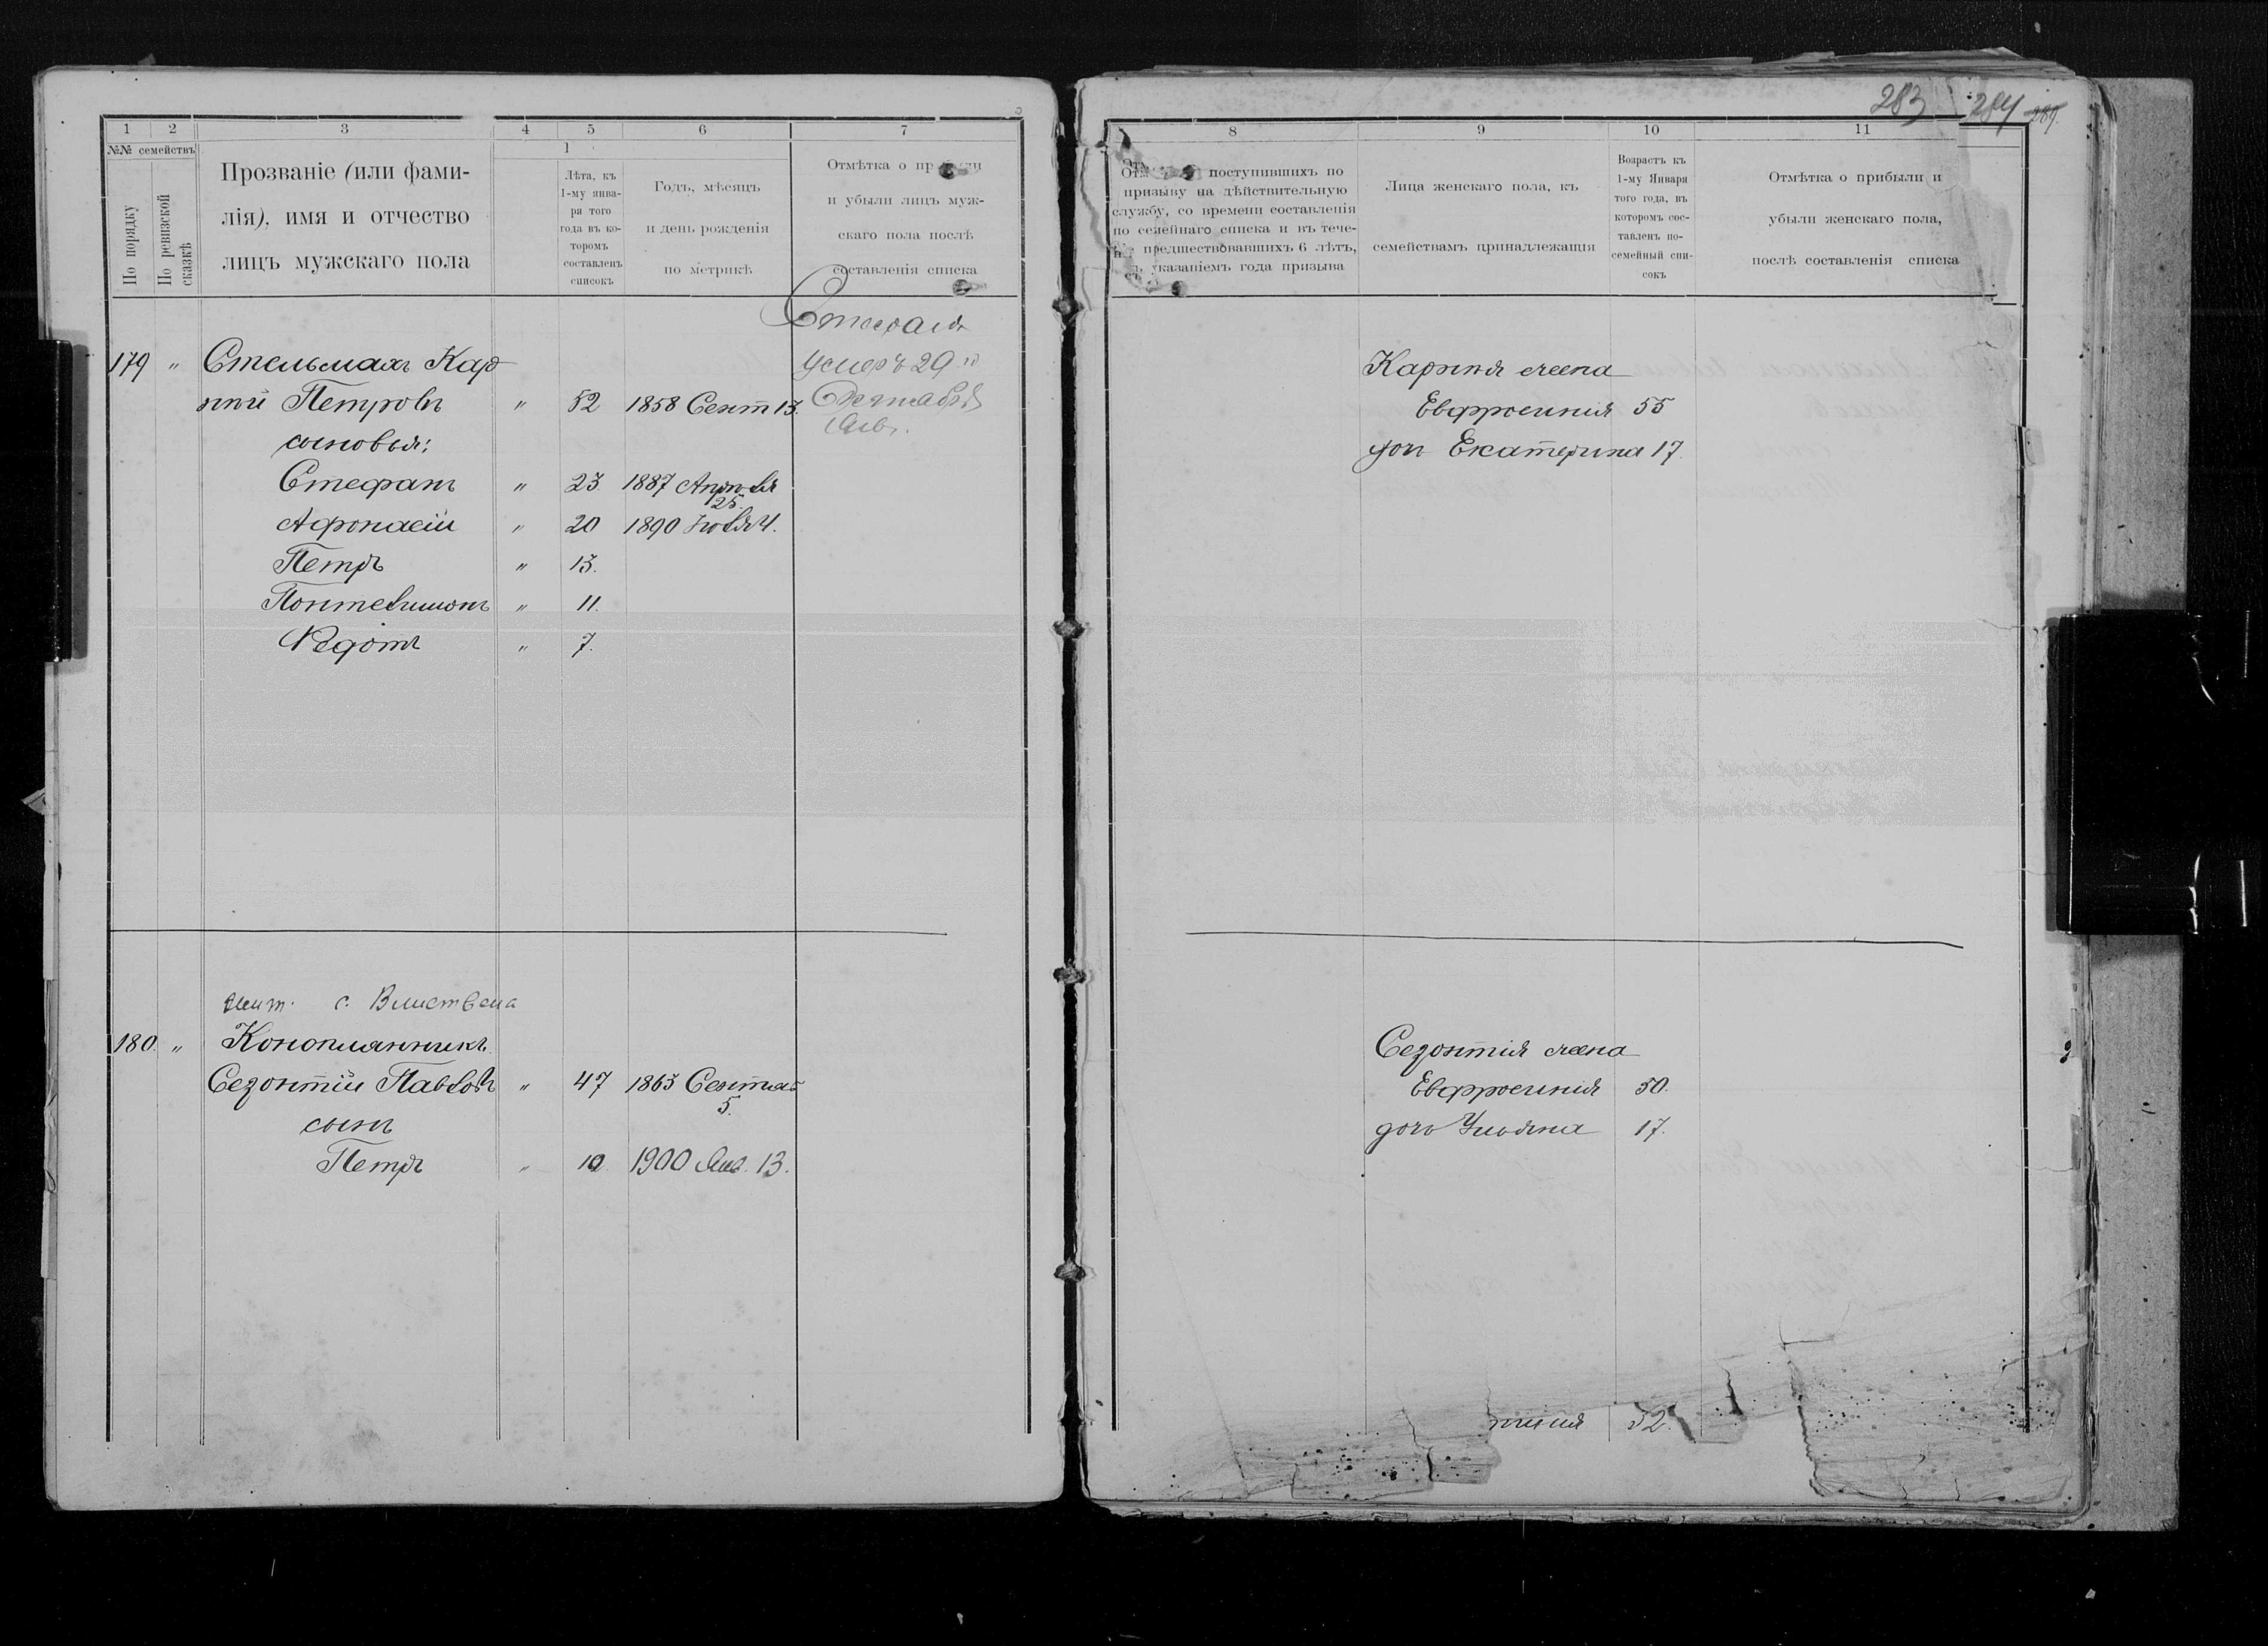 283 284 289.
1 2 3 4 5 6 7
№№ семействъ
По порядку
По ревизской сказкѣ
Прозваніе (или фами-
лія), имя и отчество
лицъ мужскаго пола
1
Лѣта, къ
1-му янва-
ря того
года въ ко-
торомъ
составленъ
списокъ
Годъ, мѣсяцъ
и день рожденія
по метрикѣ
Отмѣтка о
и убыли лицъ муж-
скаго пола послѣ
составленія списка
179 " Стельмахъ Кар
Петровъ " 52 1858 Сент 13.
сыновья:
Стефанъ " 23. 1887 Апреля
25.
Афонасій " 20 1890 Іюля 4.
Петръ " 13.
Понтелимонъ " 11.
Ѳедотъ " 7.
умеръ 29 го
жит. с.
180. " Конопляникъ
Сезонтій Павловъ " 47 1863 Сентяб
5.
сынъ
Петръ " 10. 1900 Янв. 13.
8 9 10 11
поступившихъ по
призыву на дѣйствительную
службу, со времени составленія
по семейнаго списка и въ тече-
предшествовавшихъ 6 лѣтъ,
указаніемъ года призыва
Лица женскаго пола, къ
семействамъ принадлежащія
Возрастъ къ
1-му Января
того года, въ
которомъ сос-
тавленъ по-
семейный спи-
сокъ
Отмѣтка о прибыли и
убыли женскаго пола,
послѣ составленія списка
Карпія жена
Евфросинія 55
доч Екатерина 17.
Сезонтія жена
Евфросинія 50.
дочь Ульяна 17.
52.